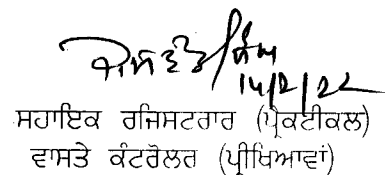 ਜਸਵੰਤ ਸਿੰਘ
14/2/22
ਸਹਾਇਕ ਰਜਿਸਟਰਾਰ (ਪ੍ਰੈਕਟੀਕਲ)
ਵਾਸਤੇ ਕੰਟਰੋਲਰ (ਪ੍ਰੀਖਿਆਵਾਂ)